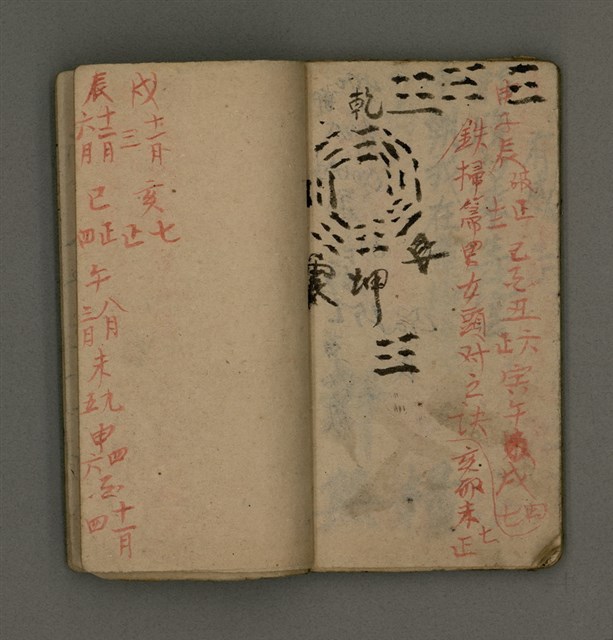 申子辰破正 巳正丑六 寅午戌七
十二 正 四
鉄掃箒男女頭对之法 亥卯未正
七
乾
坤
震
戌十一月 亥七
三 正
辰十二月 巳正 午八月 未九 申四 酉十一月
六月 四 三月 五 六 四